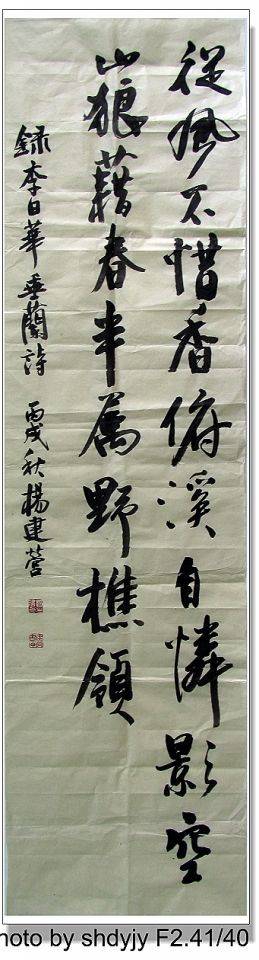 從風不惜香俯溪自憐影空
山狼藉春半屬野樵領
錄李日華垂蘭詩 丙戌秋楊建萱
hoto by shdyjy F2.41/40